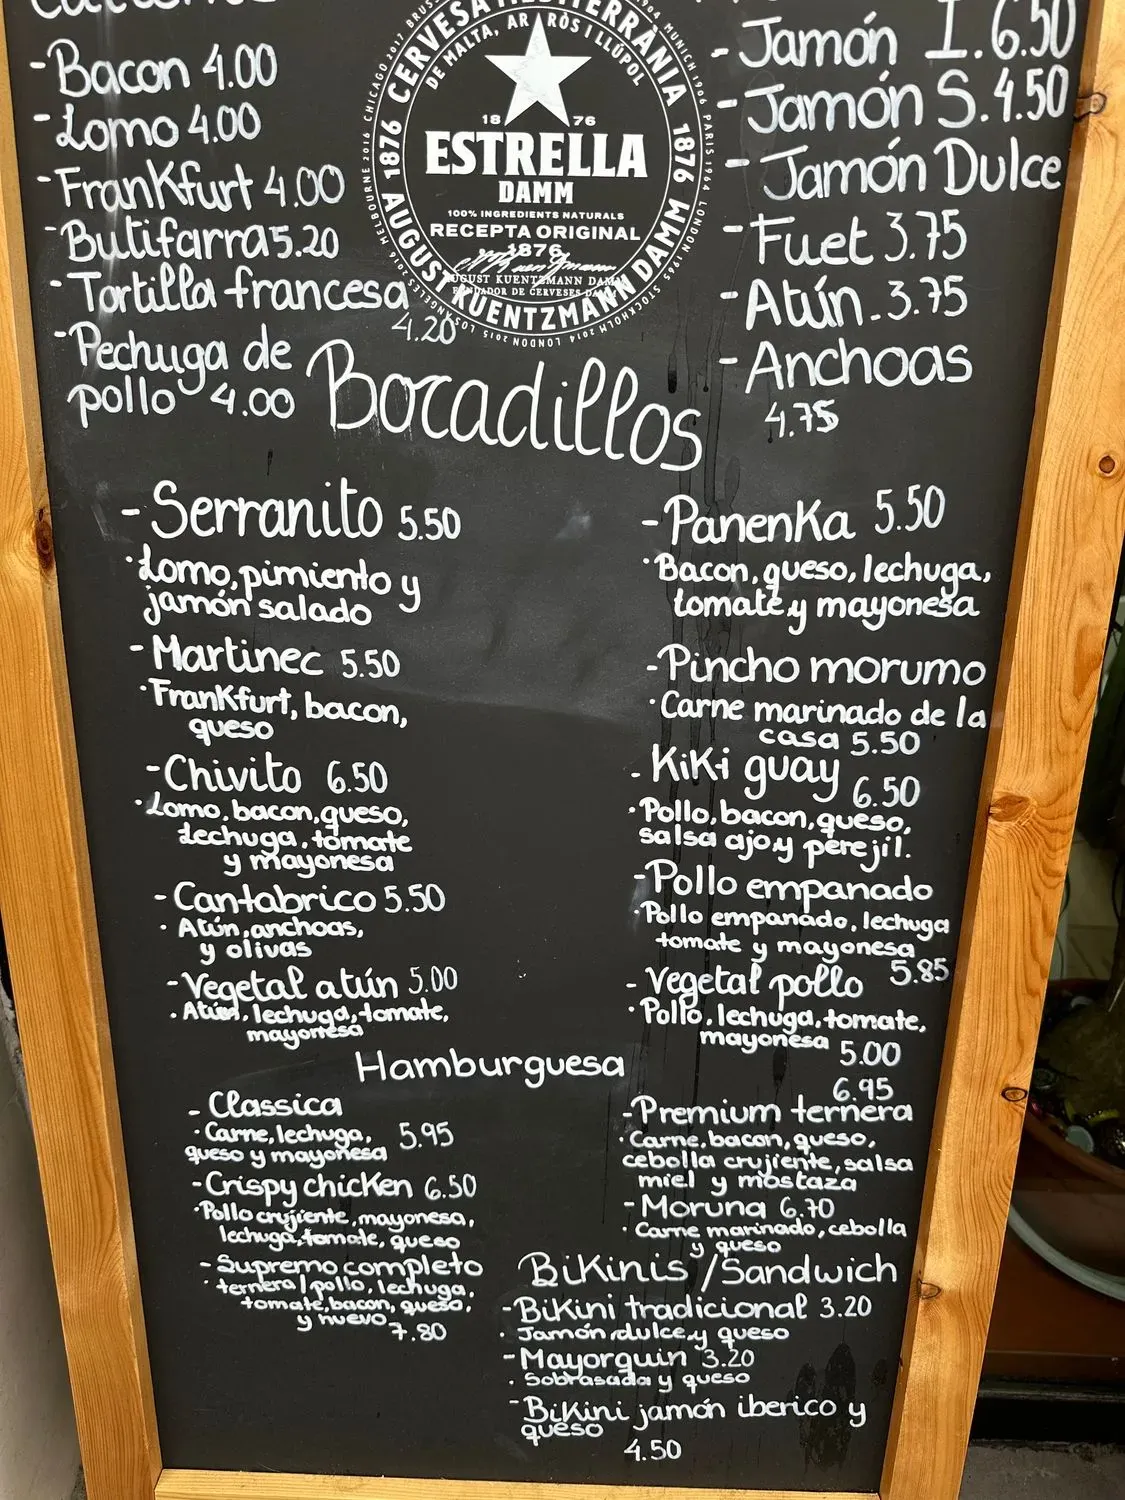 - Bacon 4.00
- Lomo 4.00
- Frankfurt 4.00
- Butifarra 5.20
- Tortilla francesa
4.20
- Pechuga de
pollo 4.00
CERVESA MEDITERRÀNIA
DE MALTA, ARRÒS I LLÚPOL
1876
1876
18 76
ESTRELLA
DAMM
100% INGREDIENTS NATURALS
RECEPTA ORIGINAL
1876
AUGUST KUENTZMANN DAMM
FUNDADOR DE CERVESES DAMM
AUGUST KUENTZMANN DAMM
MELBOURNE 2016 CHICAGO 2017
MUNICH 1906 PARIS 1964 LONDON 1965 STOCKHOLM 2014 LONDON 2015 LOS ANGELES
- Jamón I. 6.50
- Jamón S. 4.50
- Jamón Dulce
- Fuet 3.75
- Atún - 3.75
- Anchoas
4.75
Bocadillos
- Serranito 5.50
· Lomo, pimiento y
jamón salado
- Martinec 5.50
· Frankfurt, bacon,
queso
- Chivito 6.50
· Lomo, bacon, queso,
Lechuga, tomate
y mayonesa
- Cantabrico 5.50
· Atún, anchoas,
y olivas
- Vegetal atún 5.00
· Atún, lechuga, tomate,
mayonesa
- Panenka 5.50
· Bacon, queso, lechuga,
tomate y mayonesa
- Pincho morumo
· Carne marinado de la
casa 5.50
- Kiki guay
6.50
· Pollo, bacon, queso,
salsa ajo y perejil.
- Pollo empanado
· Pollo empanado, lechuga
tomate y mayonesa
5.85
- Vegetal pollo
· Pollo, lechuga, tomate,
mayonesa 5.00
Hamburguesa
- Classica
· Carne, lechuga, 5.95
queso y mayonesa
- Crispy chicken 6.50
· Pollo crujiente, mayonesa,
lechuga, tomate, queso
- Supremo completo
· ternera/pollo, lechuga,
tomate, bacon, queso,
y huevo
7.80
6.95
- Premium ternera
· Carne, bacon, queso,
cebolla crujiente, salsa
miel y mostaza
- Moruna 6.70
· Carne marinado, cebolla
y queso
Bikinis / Sandwich
- Bikini tradicional 3.20
· Jamón dulce y queso
- Mayorquin 3.20
· Sobrasada y queso
- Bikini jamón iberico y
queso
4.50